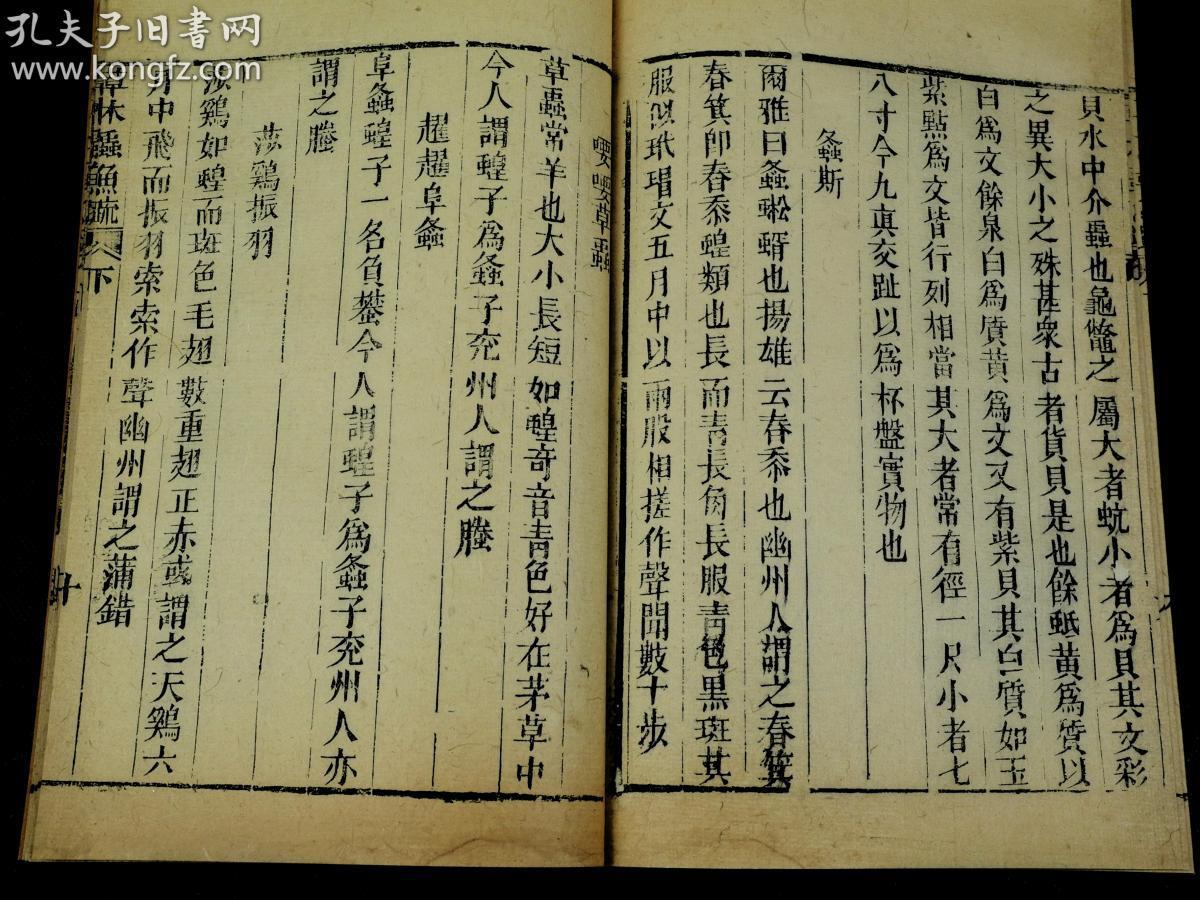 孔夫子旧书网
www.kongfz.com
貝水中介蟲也龜鼈之屬大者蚢小者爲貝其文彩
之異大小之殊甚衆古者貨貝是也餘蚳黄爲質以
白爲文餘泉白爲質黄爲文又有紫貝其白質如玉
紫點爲文皆行列相當其大者常有徑一尺小者七
八寸今九真交趾以爲杯盤實物也
螽斯
爾雅曰螽蜙蝑也揚雄云春黍也幽州人謂之春箕
春箕即春黍蝗類也長而青長角長股青色黑斑其
股似玳瑁文五月中以兩股相搓作聲聞數十步
喓喓草蟲
草蟲常羊也大小長短如蝗奇音青色好在茅草中
今人謂蝗子爲螽子兖州人謂之螣
趯趯阜螽
阜螽蝗子一名負蠜今人謂蝗子爲螽子兖州人亦
謂之螣
莎鷄振羽
莎鷄如蝗而斑色毛翅數重翅正赤或謂之天鷄六
月中飛而振羽索索作聲幽州謂之蒲錯
草木蟲魚疏 下 十